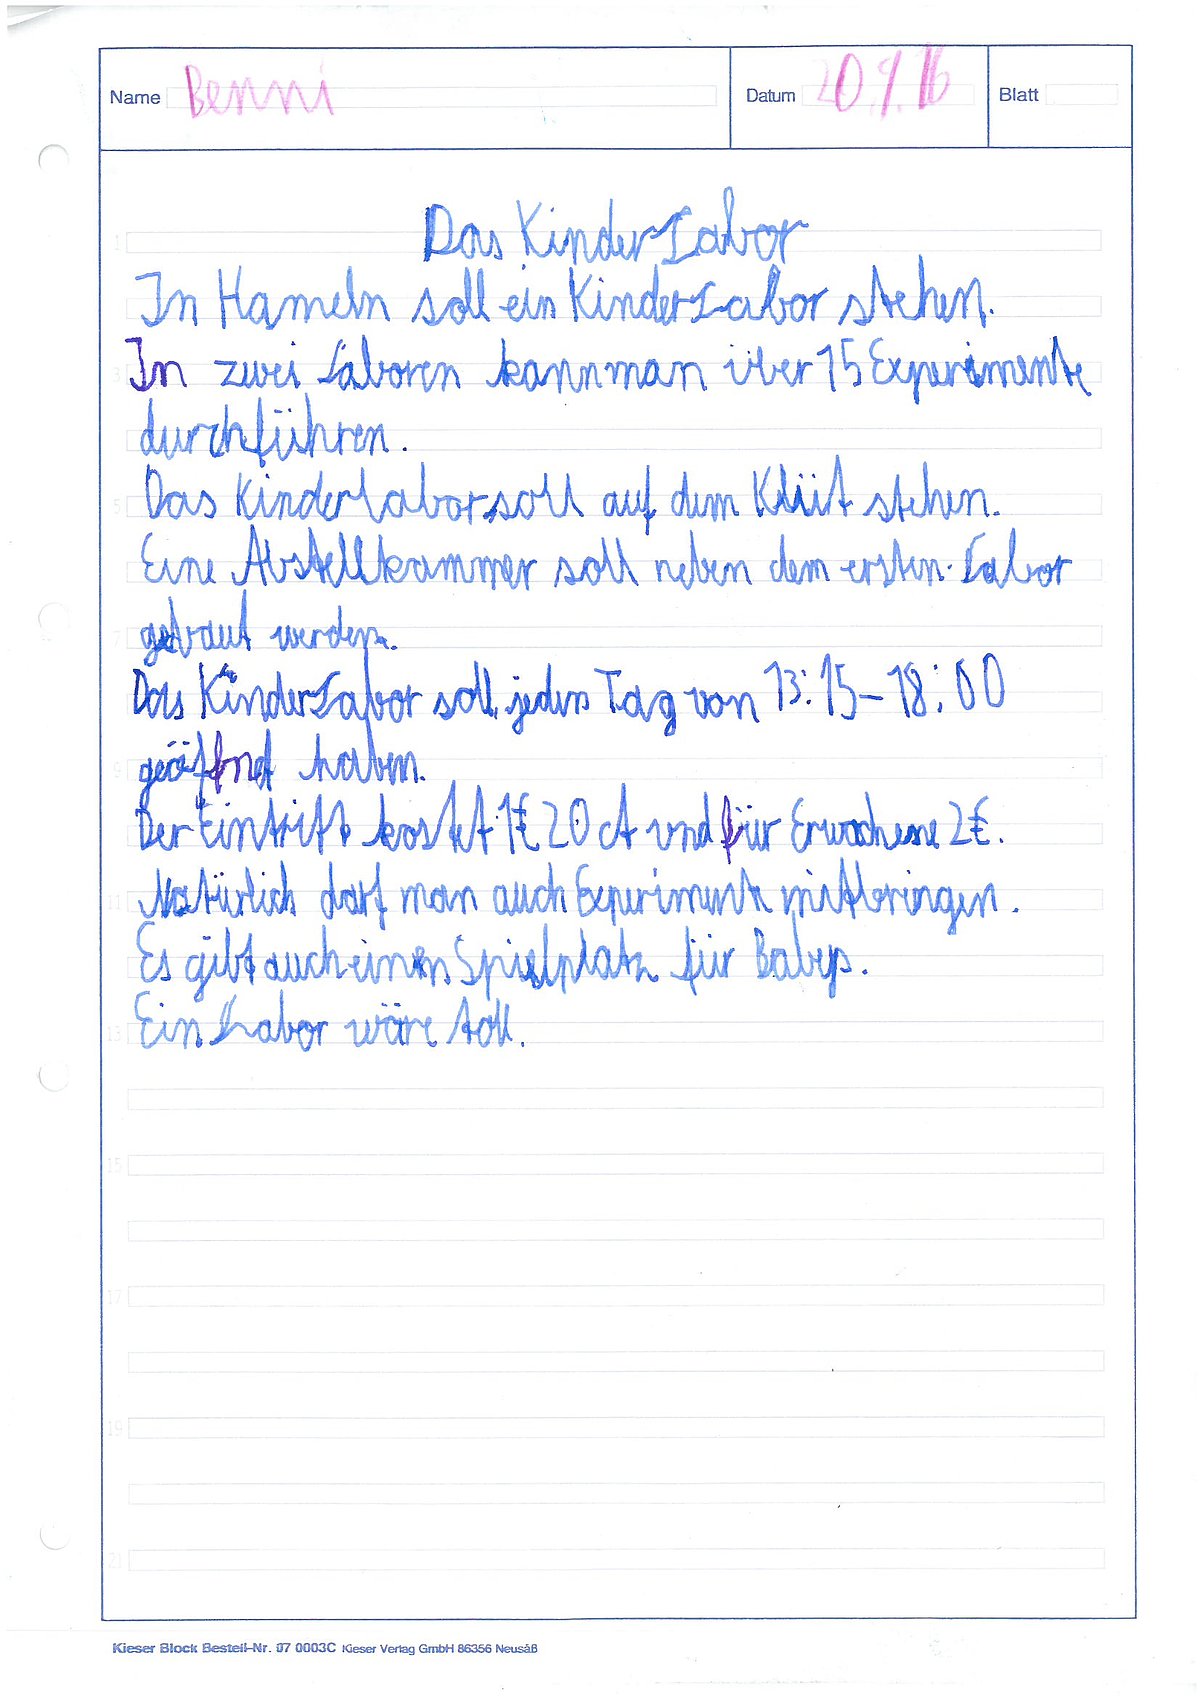 Name Benni Datum 20.9.16 Blatt
Das KinderLabor
In Hameln soll ein KinderLabor stehen.
In zwei Laboren kann man über 15 Experimente
durchführen.
Das Kinderlabor soll auf dem Klüt stehen.
Eine Abstellkammer soll neben dem ersten Labor
gebaut werden.
Das KinderLabor soll jeden Tag von 13:15-18:00
geöffnet haben.
Der Eintritt kostet 1€ 20 ct und für Erwachsene 2€.
Natürlich darf man auch Experimente mitbringen.
Es gibt auch einen Spielplatz für Babys.
Ein Labor wäre toll.
Kieser Block Bestell-Nr. 07 0003C Kieser Verlag GmbH 86356 Neusäß